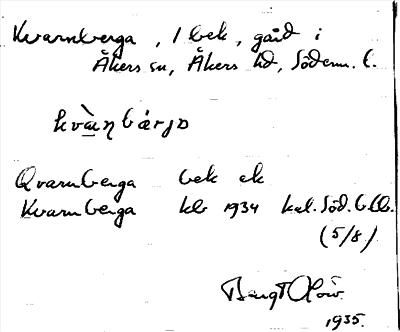 Kvarnberga, 1 bek, gård i
Åkers sn, Åkers hd, Söderm. l.
kvàɳbárjɒ
Qvarnberga bek ek
Kvarnberga kb 1934 kal. Söd. bll.
(5/8)
Bengt
1935.